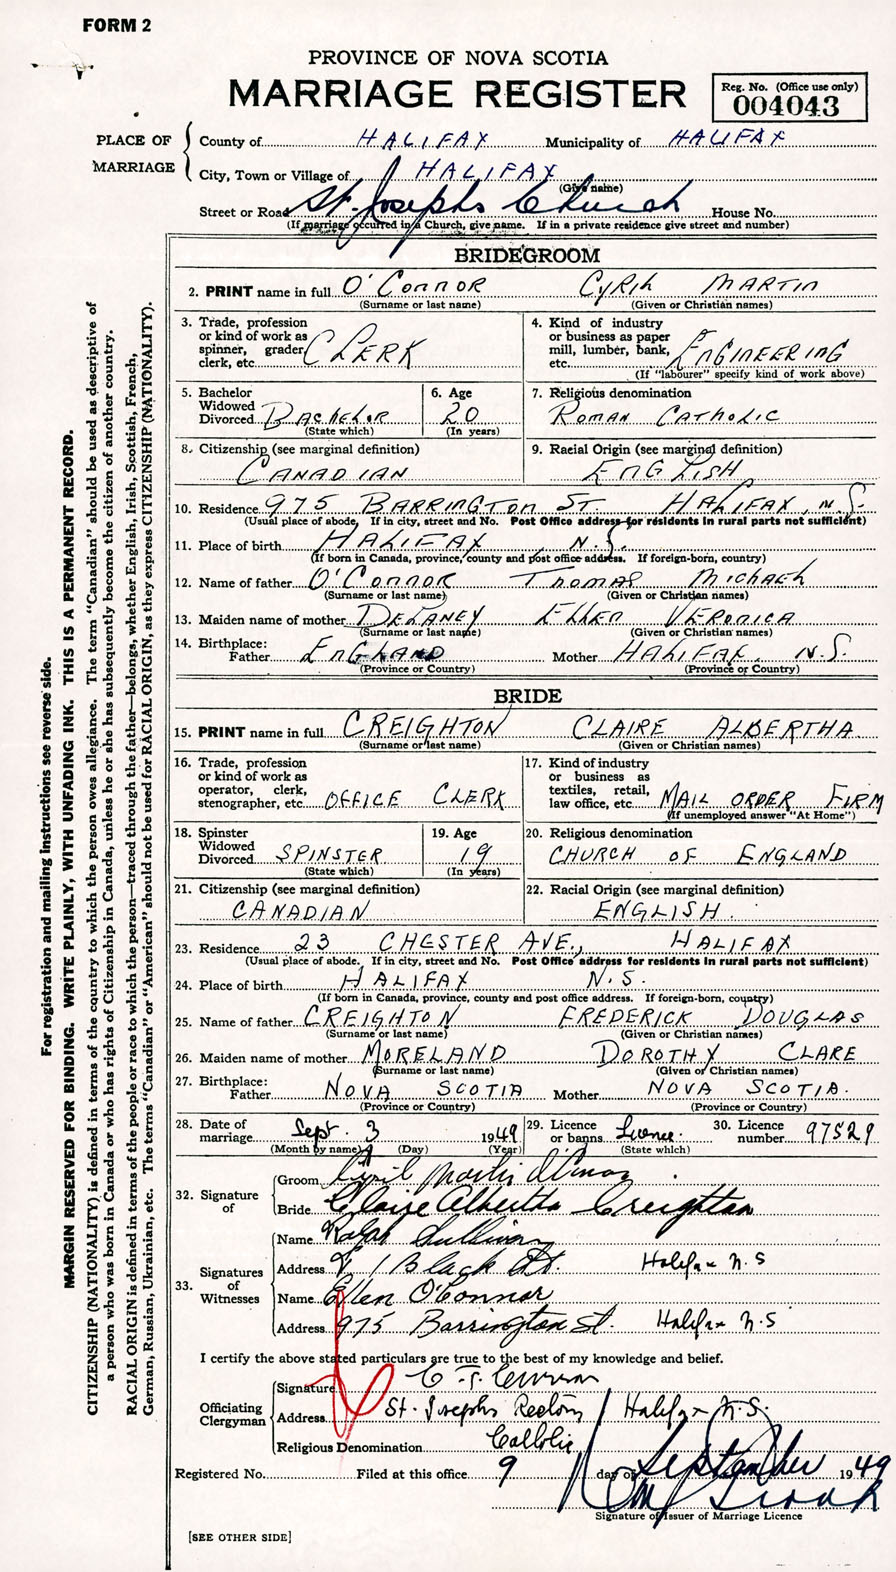 FORM 2
PROVINCE OF NOVA SCOTIA
MARRIAGE REGISTER
Reg. No. (Office use only)
004043
PLACE OF MARRIAGE
County of HALIFAX Municipality of HALIFAX
City, Town or Village of HALIFAX
(Give name)
Street or Road St. Josephs Church House No.
(If marriage occurred in a Church, give name. If in a private residence give street and number)
BRIDEGROOM
2. PRINT name in full O'CONNOR CYRIL MARTIN
(Surname or last name) (Given or Christian names)
3. Trade, profession or kind of work as spinner, grader, clerk, etc. CLERK
4. Kind of industry or business as paper mill, lumber, bank, etc. ENGINEERING
(If "labourer" specify kind of work above)
5. Bachelor Widowed Divorced BACHELOR
(State which)
6. Age 20
(In years)
7. Religious denomination
ROMAN CATHOLIC
8. Citizenship (see marginal definition)
CANADIAN
9. Racial Origin (see marginal definition)
ENGLISH
10. Residence 975 BARRINGTON ST. HALIFAX, N.S.
(Usual place of abode. If in city, street and No. Post Office address for residents in rural parts not sufficient)
11. Place of birth HALIFAX N.S.
(If born in Canada, province, county and post office address. If foreign-born, country)
12. Name of father O'CONNOR THOMAS MICHAEL
(Surname or last name) (Given or Christian names)
13. Maiden name of mother DELANEY ELLEN VERONICA
(Surname or last name) (Given or Christian names)
14. Birthplace:
Father ENGLAND Mother HALIFAX N.S.
(Province or Country) (Province or Country)
BRIDE
15. PRINT name in full CREIGHTON CLAIRE ALBERTHA
(Surname or last name) (Given or Christian names)
16. Trade, profession or kind of work as operator, clerk, stenographer, etc. OFFICE CLERK
17. Kind of industry or business as textiles, retail, law office, etc. MAIL ORDER FIRM
(If unemployed answer "At Home")
18. Spinster Widowed Divorced SPINSTER
(State which)
19. Age 19
(In years)
20. Religious denomination
CHURCH OF ENGLAND
21. Citizenship (see marginal definition)
CANADIAN
22. Racial Origin (see marginal definition)
ENGLISH.
23. Residence 23 CHESTER AVE., HALIFAX
(Usual place of abode. If in city, street and No. Post Office address for residents in rural parts not sufficient)
24. Place of birth HALIFAX N.S.
(If born in Canada, province, county and post office address. If foreign-born, country)
25. Name of father CREIGHTON FREDERICK DOUGLAS
(Surname or last name) (Given or Christian names)
26. Maiden name of mother MORELAND DOROTHY CLARE
(Surname or last name) (Given or Christian names)
27. Birthplace:
Father NOVA SCOTIA Mother NOVA SCOTIA.
(Province or Country) (Province or Country)
28. Date of marriage Sept. 3 1949
(Month by name) (Day) (Year)
29. Licence or banns Licence.
(State which)
30. Licence number 97529
32. Signature of
Groom Cyril Martin O'Connor
Bride Claire Albertha Creighton
33. Signatures of Witnesses
Name Ralph Sullivan
Address 1 Black St. Halifax N.S
Name Ellen O'Connor
Address 975 Barrington St. Halifax N.S
I certify the above stated particulars are true to the best of my knowledge and belief.
Officiating Clergyman
Signature C. J.
Address St. Josephs Rectory Halifax N.S.
Religious Denomination Catholic
Registered No. Filed at this office 9 day of September 1949
Signature of Issuer of Marriage Licence
[SEE OTHER SIDE]
For registration and mailing instructions see reverse side.
MARGIN RESERVED FOR BINDING. WRITE PLAINLY, WITH UNFADING INK. THIS IS A PERMANENT RECORD.
CITIZENSHIP (NATIONALITY) is defined in terms of the country to which the person owes allegiance. The term "Canadian" should be used as descriptive of
a person who was born in Canada or who has rights of Citizenship in Canada, unless he or she has subsequently become the citizen of another country.
RACIAL ORIGIN is defined in terms of the people or race to which the person—traced through the father—belongs, whether English, Irish, Scottish, French,
German, Russian, Ukrainian, etc. The terms "Canadian" or "American" should not be used for RACIAL ORIGIN, as they express CITIZENSHIP (NATIONALITY).